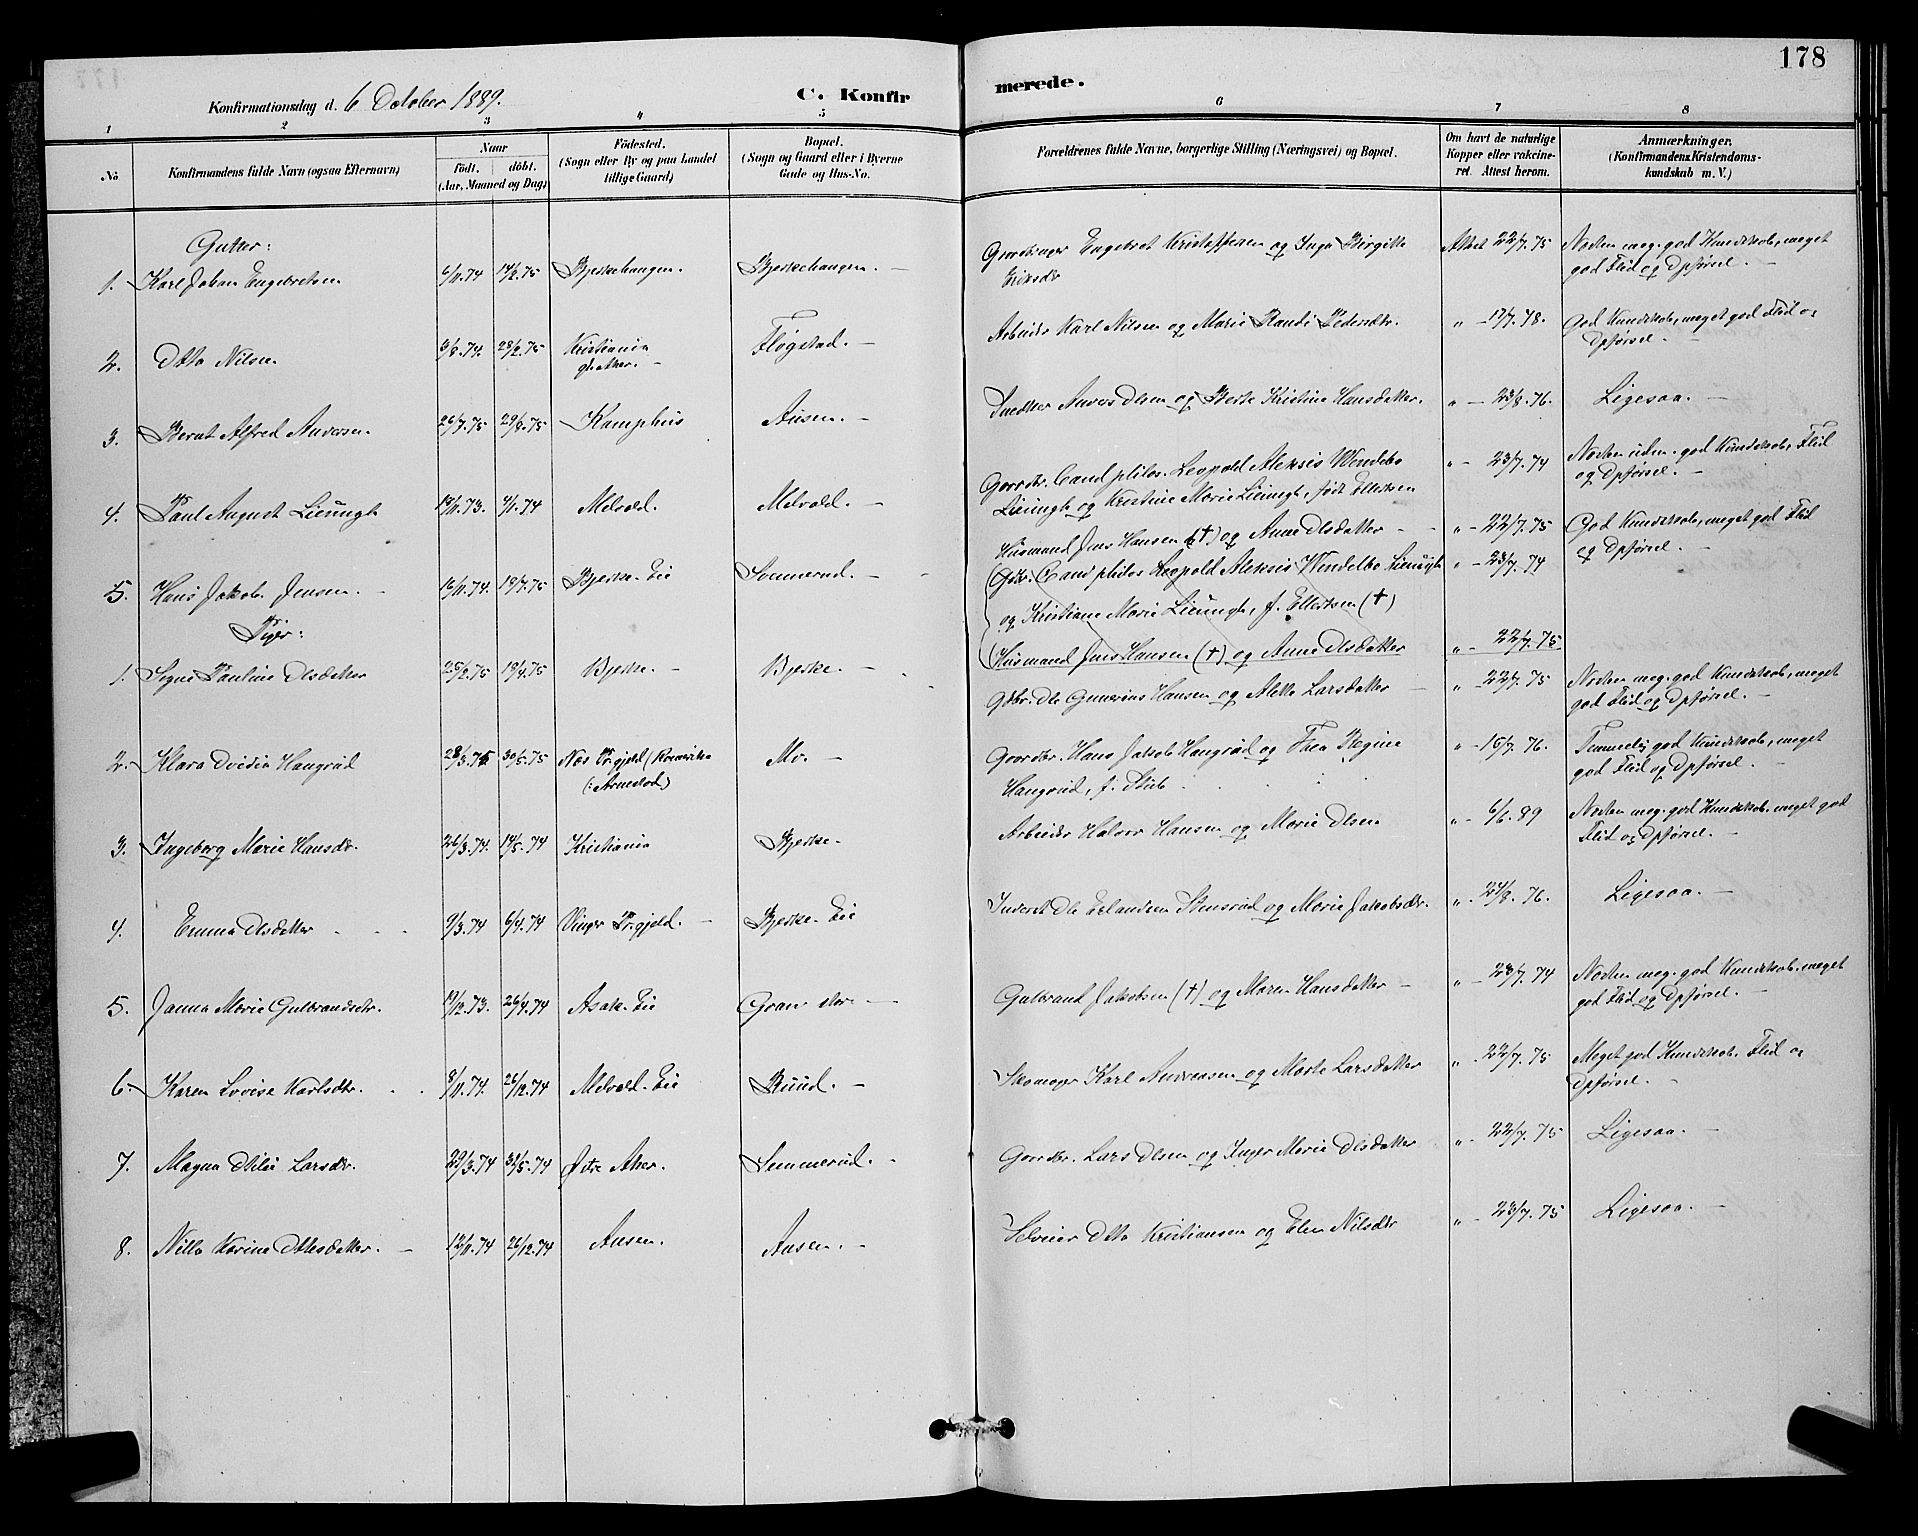 178
Konfirmationsdag d. 6 October 1889.
C. Konfirmerede.
1 2 3 4 5 6 7 8
No
Konfirmandens fulde Navn (ogsaa Efternavn)
Naar
födt. döbt.
(Aar, Maaned og Dag)
Födested.
(Sogn eller By og paa Landet
tillige Gaard)
Bopæl.
(Sogn og Gaard eller i Byerne
Gade og Hus-No.
Forældrenes fulde Navne, borgerlige Stilling (Næringsvei) og Bopæl.
Om havt de naturlige
Kopper eller vakcine-
ret. Attest herom.
Anmærkninger.
(Konfirmandens Kristendoms-
kundskab m. V.)
Gutter:
1. Karl Johan Engebretsen 6/11.74 14/2.75 Bjerkehaugen. Bjerkehaugen. — Engebret Kristoffersen og Inga Birgitte Attest 22/7.75 Næsten meg. god Kundskab, meget
Eriksdr god Flid og Opførsel. —
2. Otto Nilsen. 28/2.75 Kristiania Fløgstad. — Arbeider Karl Nilsen og Marie Randi Pedersdtr. " — 17/7.78. God Kundskab, meget god Flid o
Opførsel. —
3. Bernt Alfred Andersen. 26/7.75 29/8.75 Kamphus Ausen. — Snedker Anders Olsen og Berte Kristine Hansdatter. " — 23/8.76. Ligesaa. —
4. Paul August Lieungh 4/1.74 Melvold. Melvold. — Gaardbr. Cand philos. Leopold Aleksis Wendelbo " — 23/7.74 Næsten uden. god Kundskab, Flid
Lieungh og Kristine Marie Lieungh, født Ellertsen og Opførsel. —
5. Hans Jakob Jensen. 16/11.74. 19/7.75 Bjerke-Eie Sommerud. — Husmand Jens Hansen (†) og Anne Olsdatter — " — 22/7.75 God Kundskab, meget god Flid
og Opførsel. —
Gbr. Cand philos Leopold Aleksis Wendelbo Lieungh " — 23/7.74
og Kristiane Marie Lieungh, f. Ellertsen (†)
Husmand Jens Hansen (†) og Anne Olsdatter " — 22/7.75
Piger:
1. Signe Pauline Olsdatter 25/2.75 18/4.75 Bjerke. — Bjerke. — Gbr. Ole Gunerius Hansen og Alette Larsdatter — " — 22/7.75 Næsten meg. god Kundskab, meget
god Flid og Opførsel. —
2. Klara Ovidia Haugrud 28/3.75 30/5.75 Næs Pr.gjeld (Romerike Mo. — Gaardbr. Hans Jakob Haugrud og Thea Regine " — 15/7.76. Temmelig god Kundskab, meget
Haugrud, f. Stub god Flid og Opførsel. —
3. Ingeborg Marie Hansdr. 26/3.74. 14/5.74 Kristiania Bjerke. — Arbeider Halvor Hansen og Marie Olsen " — 6/6.89 Næsten meg. god Kundskab, meget god
Flid og Opførsel. —
4. Emma Olsdatter 9/3.74 6/4.74 Vinger Pr.gjeld. — Bjerke-Eie Inderst Ole Erlandsen Stensrud og Marie Jakobsdr. " 24/8.76. Ligesaa. —
5. Janna Marie Gulbrandsdr. 19/12.73. 26/4.74 Asak-Eie Gran — Gulbrand Jakobsen (†) og Maren Hansdatter — " — 23/7.74 Næsten meg. god Kundskab, meget
god Flid og Opførsel. —
6. Karen Lovise Karlsdtr. 8/11.74. 26/12.74 Melvold-Eie Ruud. — Skomager Karl Andreasen og Marte Larsdatter " 22/7.75 Meget god Kundskab, Flid o
Opførsel. —
7. Magna Otilie Larsdr. 22/3.74 31/5.74 Østre Aker. Sommerud. — Gaardbr. Lars Olsen og Inger Marie Olsdatter " — 22/7.75 Ligesaa. —
8. Nilla Karine Ottesdatter. — 12/11.74 26/12.74 Ausen. Ausen. — Selveier Otto Kristiansen og Elen Nilsdr " — 23/7.75 Ligesaa. —